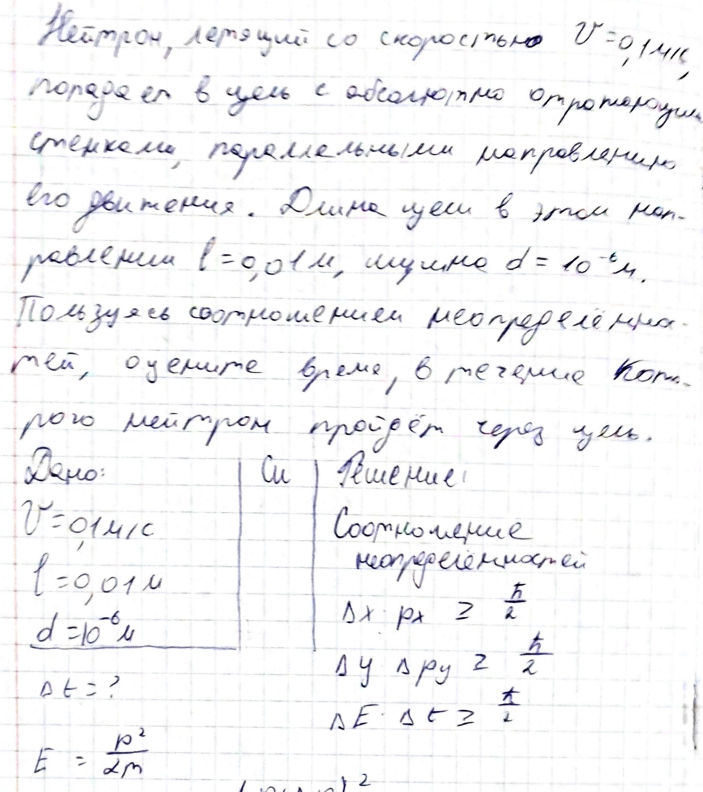 Нейтрон, летящий со скоростью V=0,1м/с,
попадает в щель с абсолютно отражающими
стенками, параллельными направлению
его движения. Длина щели в этом нап-
равлении l=0,01м, ширина d=10⁻⁶м.
Пользуясь соотношением неопределённос-
тей, оцените время, в течение кото-
рого нейтрон пройдёт через щель.
Дано: Си Решение:
V=0,1м/с Соотношение
неопределённостей
l=0,01м
Δx·px ≥ ħ/2
d=10⁻⁶м
Δy Δpy ≥ ħ/2
Δt=?
ΔE·Δt ≥ ħ/2
E = p²/2m